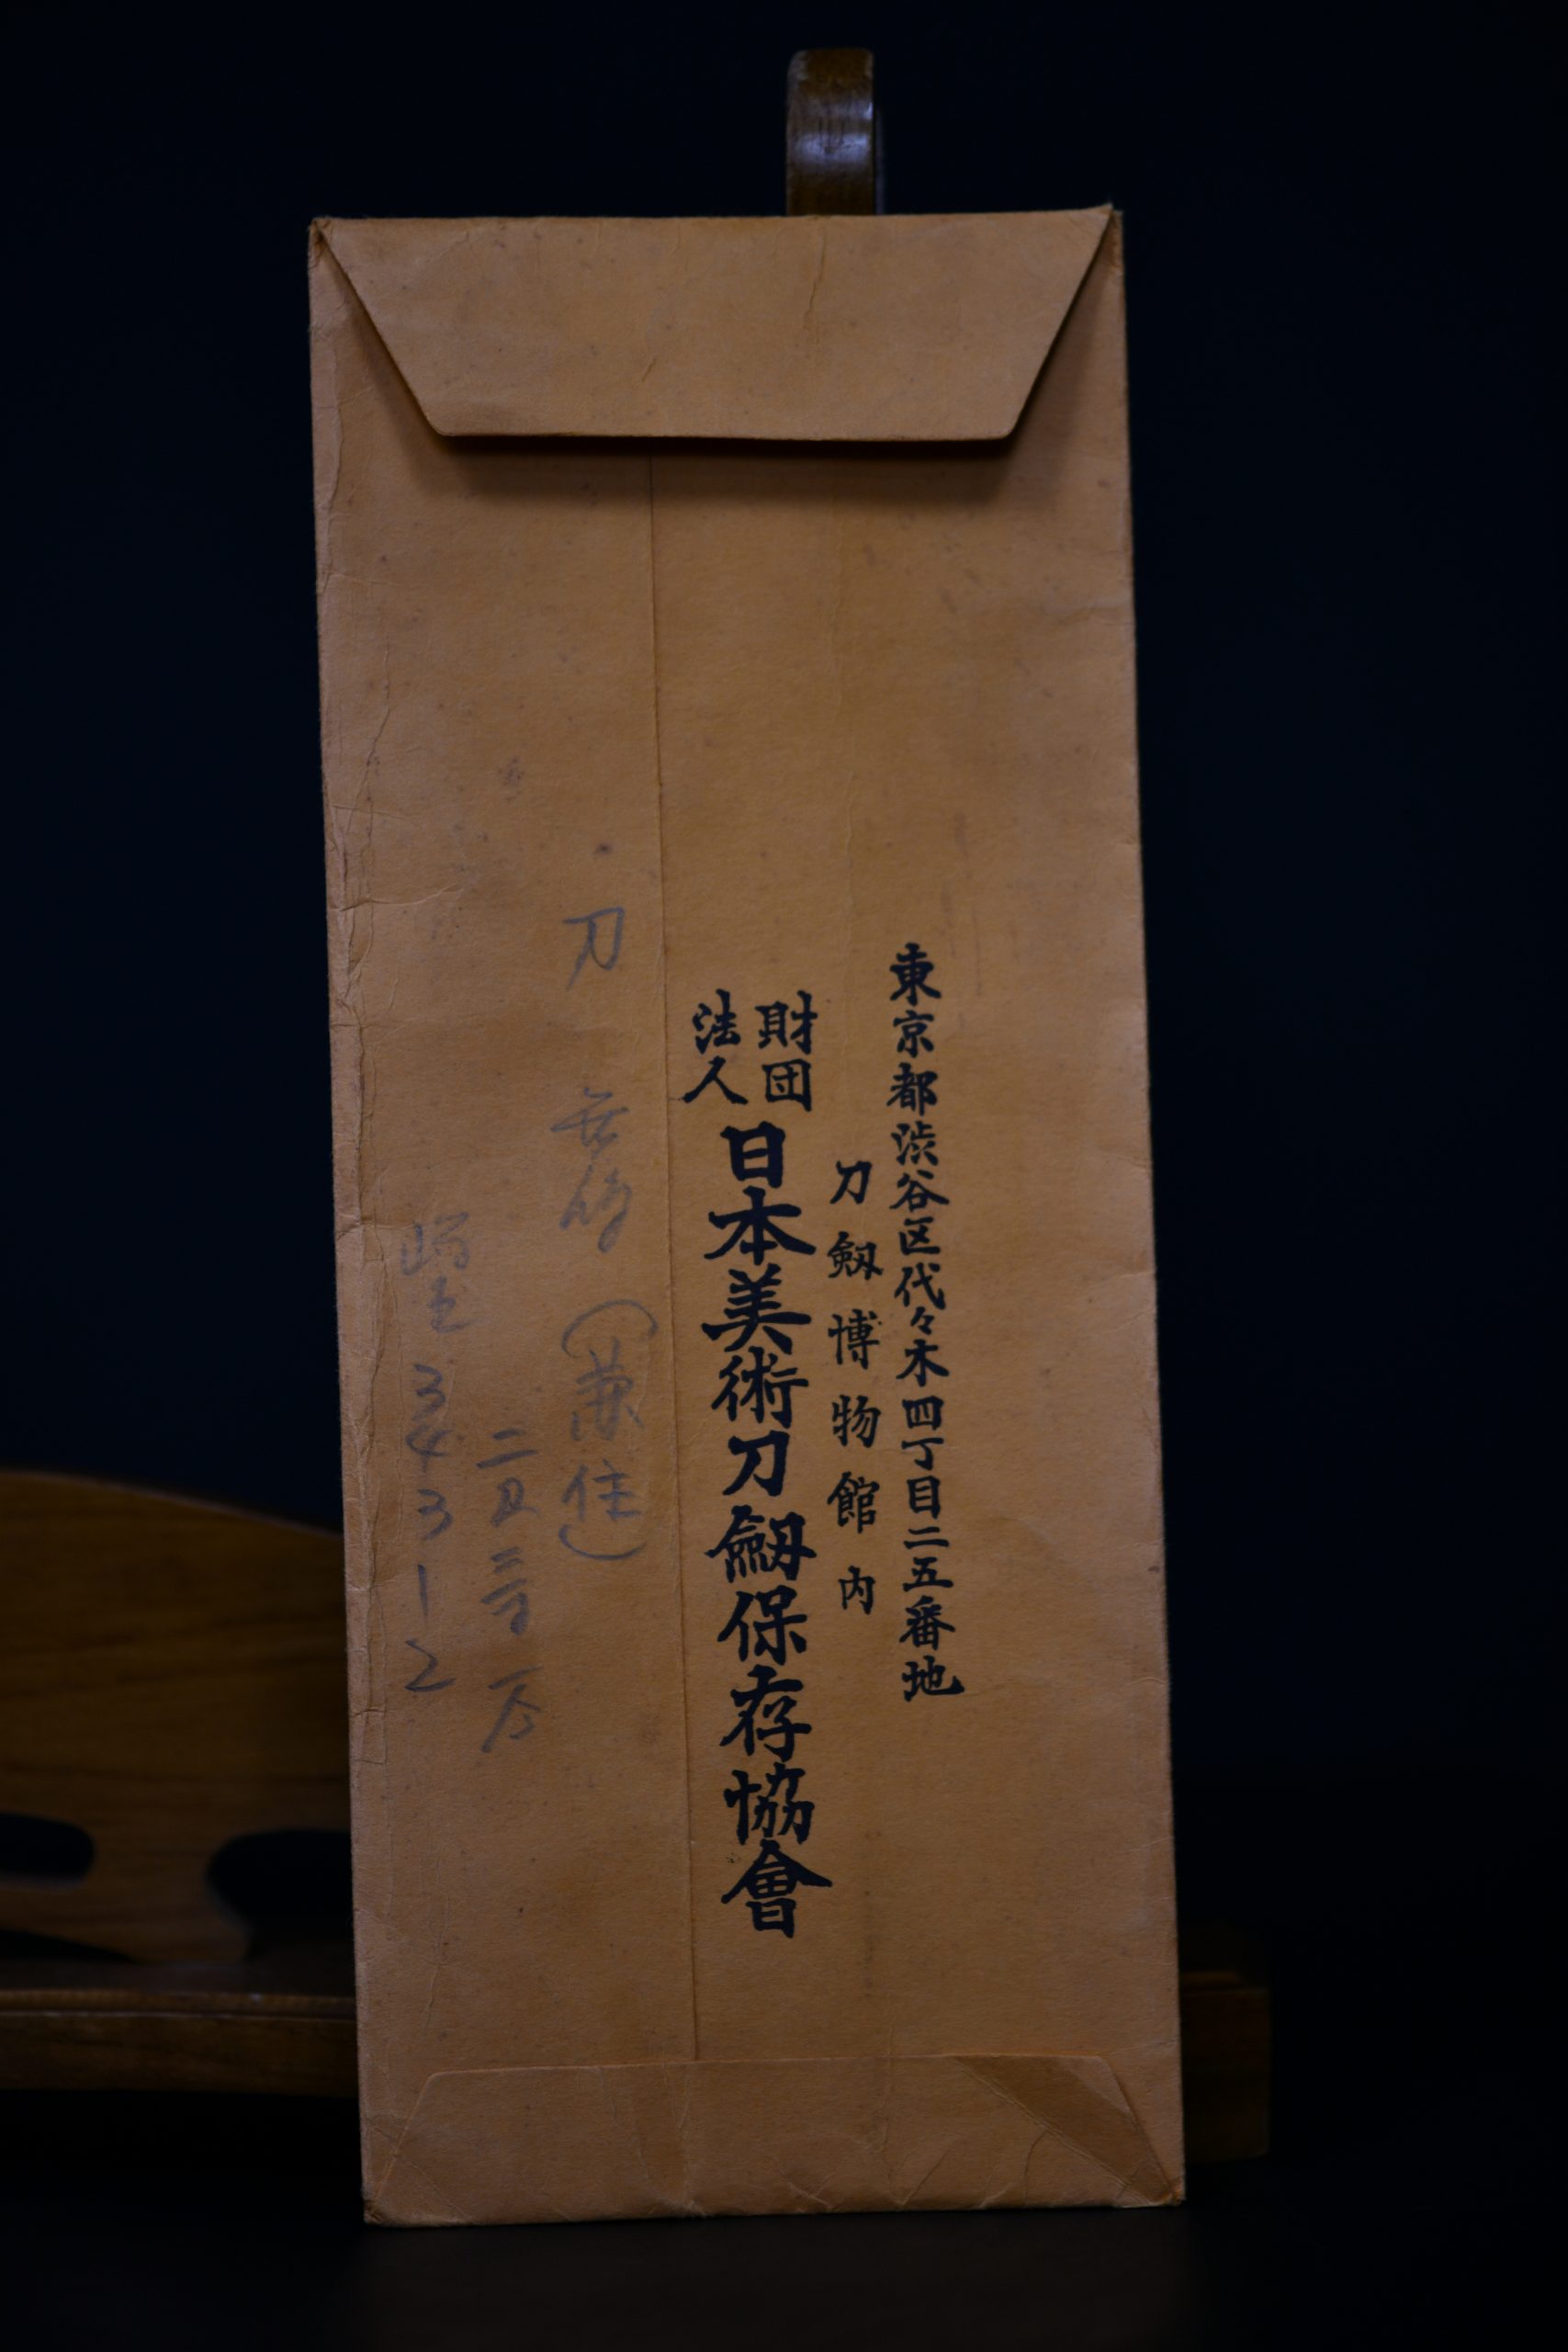 東京都渋谷区代々木四丁目二五番地
刀劔博物館内
財団法人日本美術刀劔保存協會
刀 無銘（兼住）
二尺
埼玉 34312